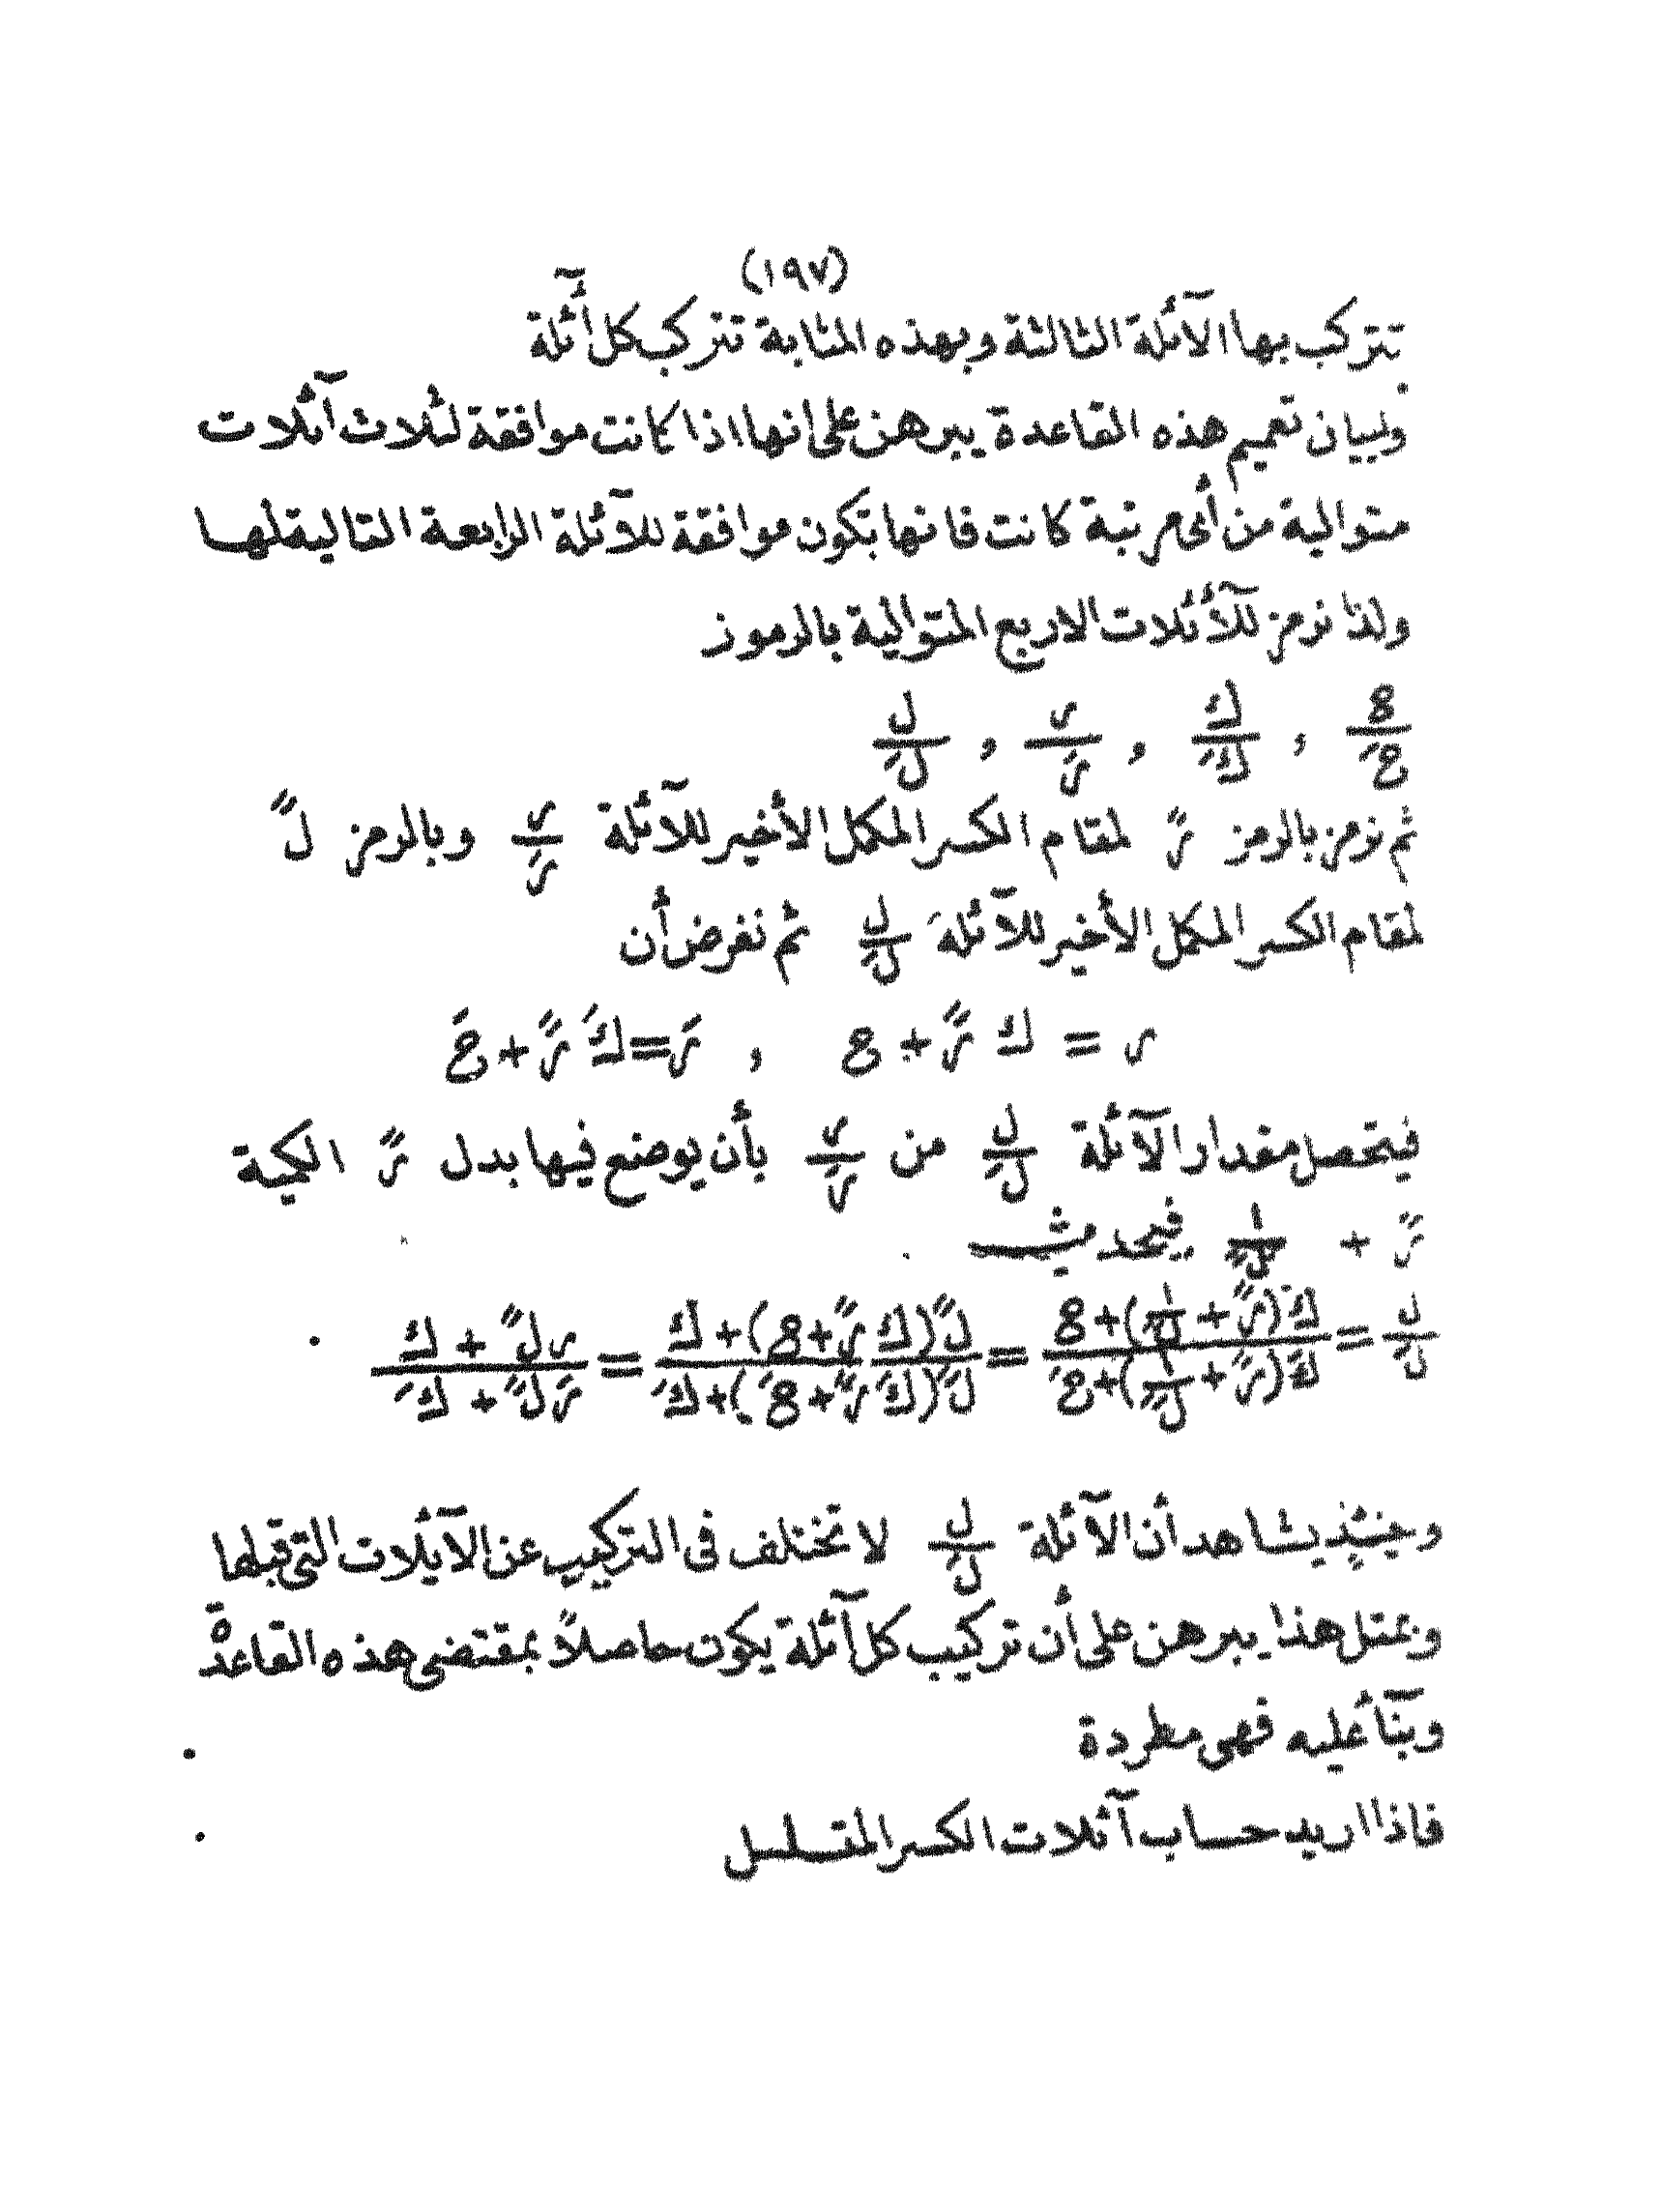 (١٩٧)
تتركب بها الآئلة الثالثة وبهذه المثابة تتركب كل آئلة
ولبيان تعميم هذه القاعدة يبرهن على انها اذا كانت موافقة لثلاث آئلات
متوالية من أى مرتبة كانت فانها تكون موافقة للآئلة الرابعة التالية لها
ولذا نرمز للآئلات الاربع المتوالية بالرموز
ع/عَ , ك/كَ , ر/رَ , ل/لَ
ثم نرمز بالرمز رً لمقام الكسر المكمل الأخير للآئلة ر/رَ وبالرمز لً
لمقام الكسر المكمل الأخير للآئلة ل/لَ ثم نفرض أن
ر = ك رً + ع , رَ = كَ رً + عَ
فيتحصل مقدار الآئلة ل/لَ من ر/رَ بأن يوضع فيها بدل رً الكمية
رً + ١/لً فيحدث
ل/لَ = (ك(رً + ١/لً) + ع)/(كَ(رً + ١/لً) + عَ) = (لً(ك رً + ع) + ك)/(لً(كَ رً + عَ) + كَ) = (ر لً + ك)/(رَ لً + كَ)
وحينئذ يشاهد أن الآئلة ل/لَ لا تختلف فى التركيب عن الآئلات التى قبلها
وبمثل هذا يبرهن على أن تركيب كل آئلة يكون حاصلاً بمقتضى هذه القاعدة
وبنآ عليه فهى مطردة
فاذا اريد حساب آئلات الكسر المتسلسل